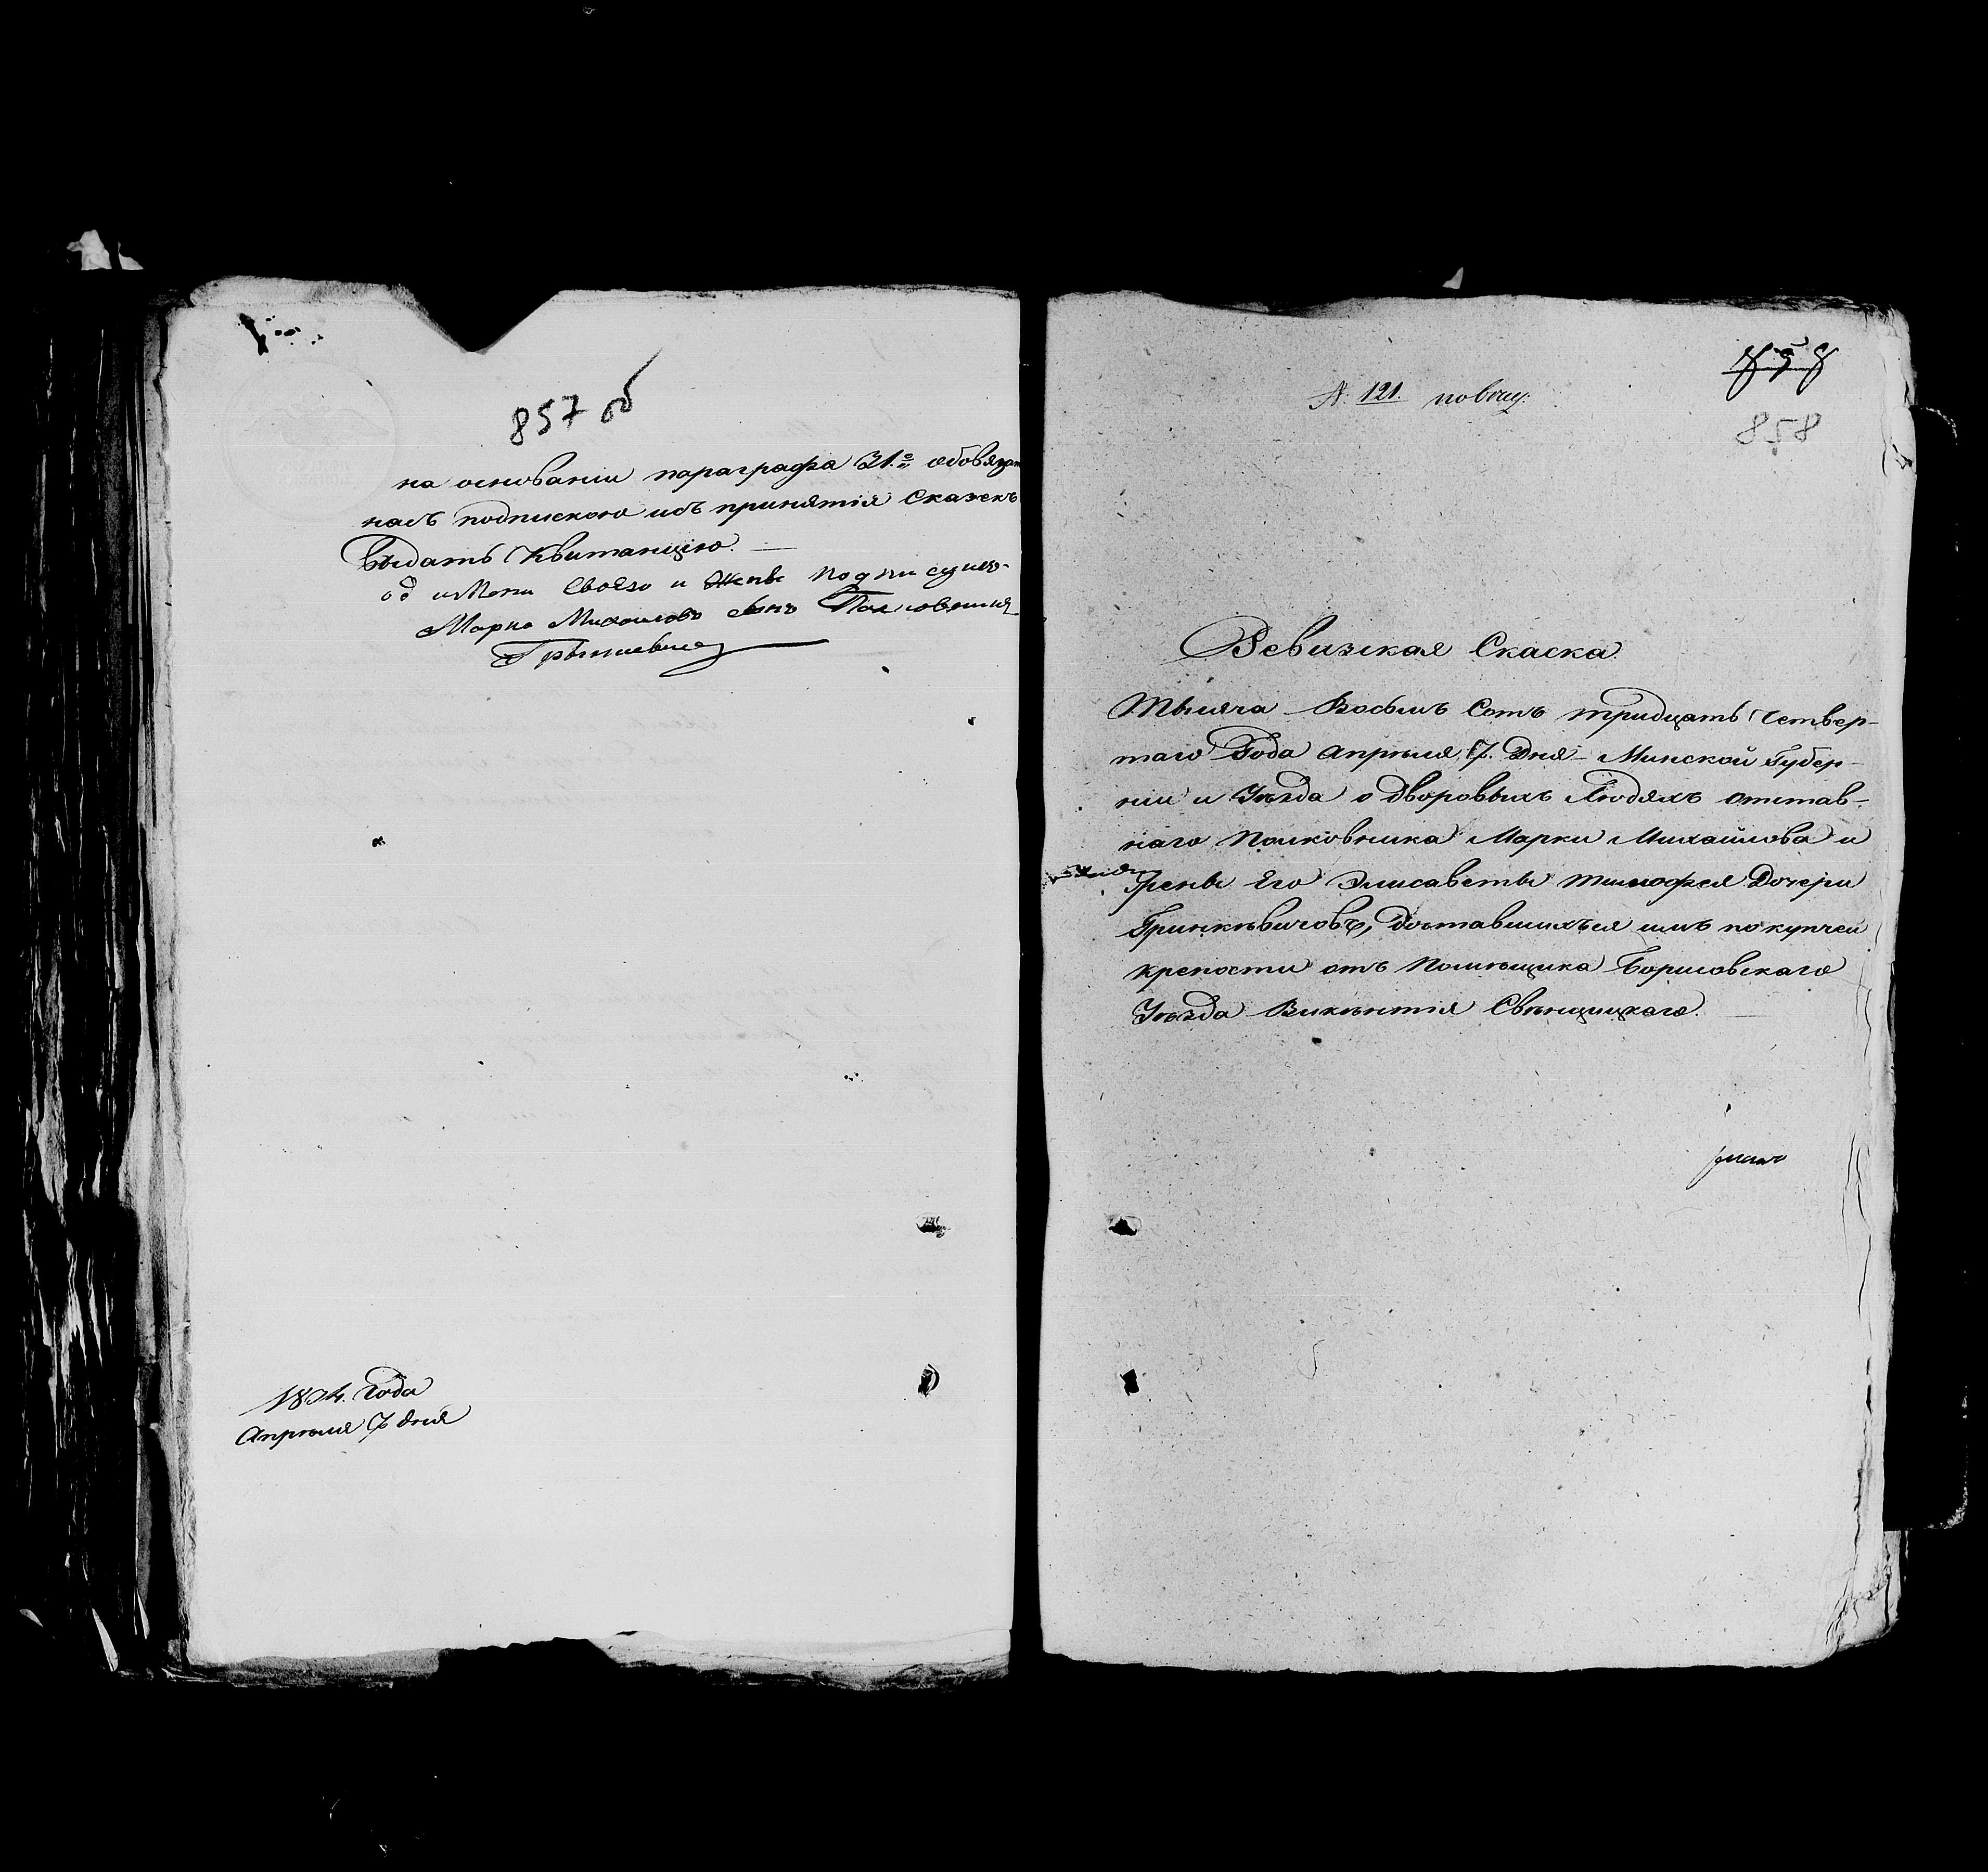 857 об
на основании параграфа 31.го обовязат
насъ подпискою и въ принятіи Сказекъ
выдать Квитанцію.
од имени Своего и Жены подписуюсь
Марко Михаиловъ Сынъ Полковникъ
Гриниевич
1834. Года
Апреля 7 дня
858
N. 121.
858
Ревизская Скаска.
Тысяча Восемъ Сотъ тридцать Четвер-
таго Года Апреля 7. Дня Минской Губер-
ніи и Уезда о дворовыхъ Людяхъ отстав-
наго Полковника Марки Михайлова и
Жены Его Элисаветы Тимофея Дочери
Гринкевичовъ, доставшихъся имъ по купчей
крепости отъ Помещика Борисовскаго
Уезда Викентія Свенцицкаго.